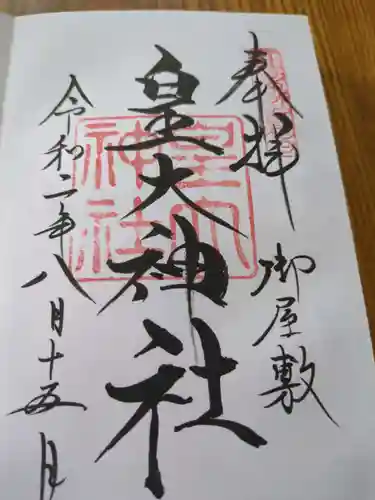 奉拝
御屋敷
皇大神社
令和二年八月十五日